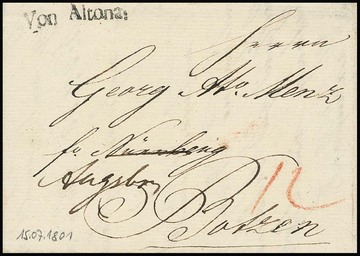 Von Altona:
Herrn
Georg Ant. Menz
fr. Nürnberg
Augsburg
12
Botzen
15.07.1801